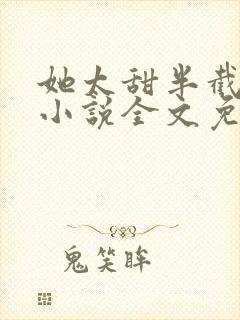 她太甜半截
小说全文免
鬼笑眸